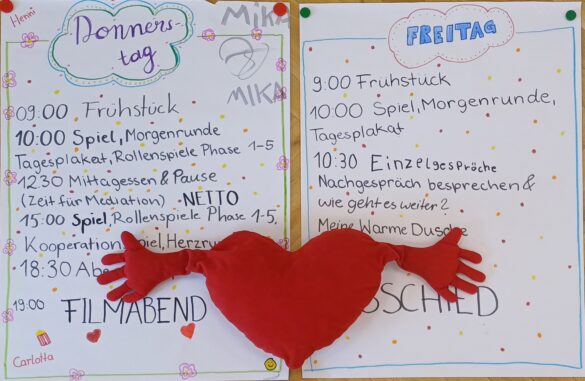 Henni
Donners-
tag
MIKA
MIKA
09:00 Frühstück
10:00 Spiel, Morgenrunde
Tagesplakat, Rollenspiele Phase 1-5
12:30 Mittagessen & Pause
(Zeit für Mediation) NETTO
15:00 Spiel, Rollenspiele Phase 1-5,
Kooperation
18:30
19:00 FILMABEND
Carlotta
FREITAG
9:00 Frühstück
10:00 Spiel, Morgenrunde,
Tagesplakat
10:30 Einzelgespräche
Nachgespräch besprechen &
wie geht es weiter?
Meine Warme Dusche